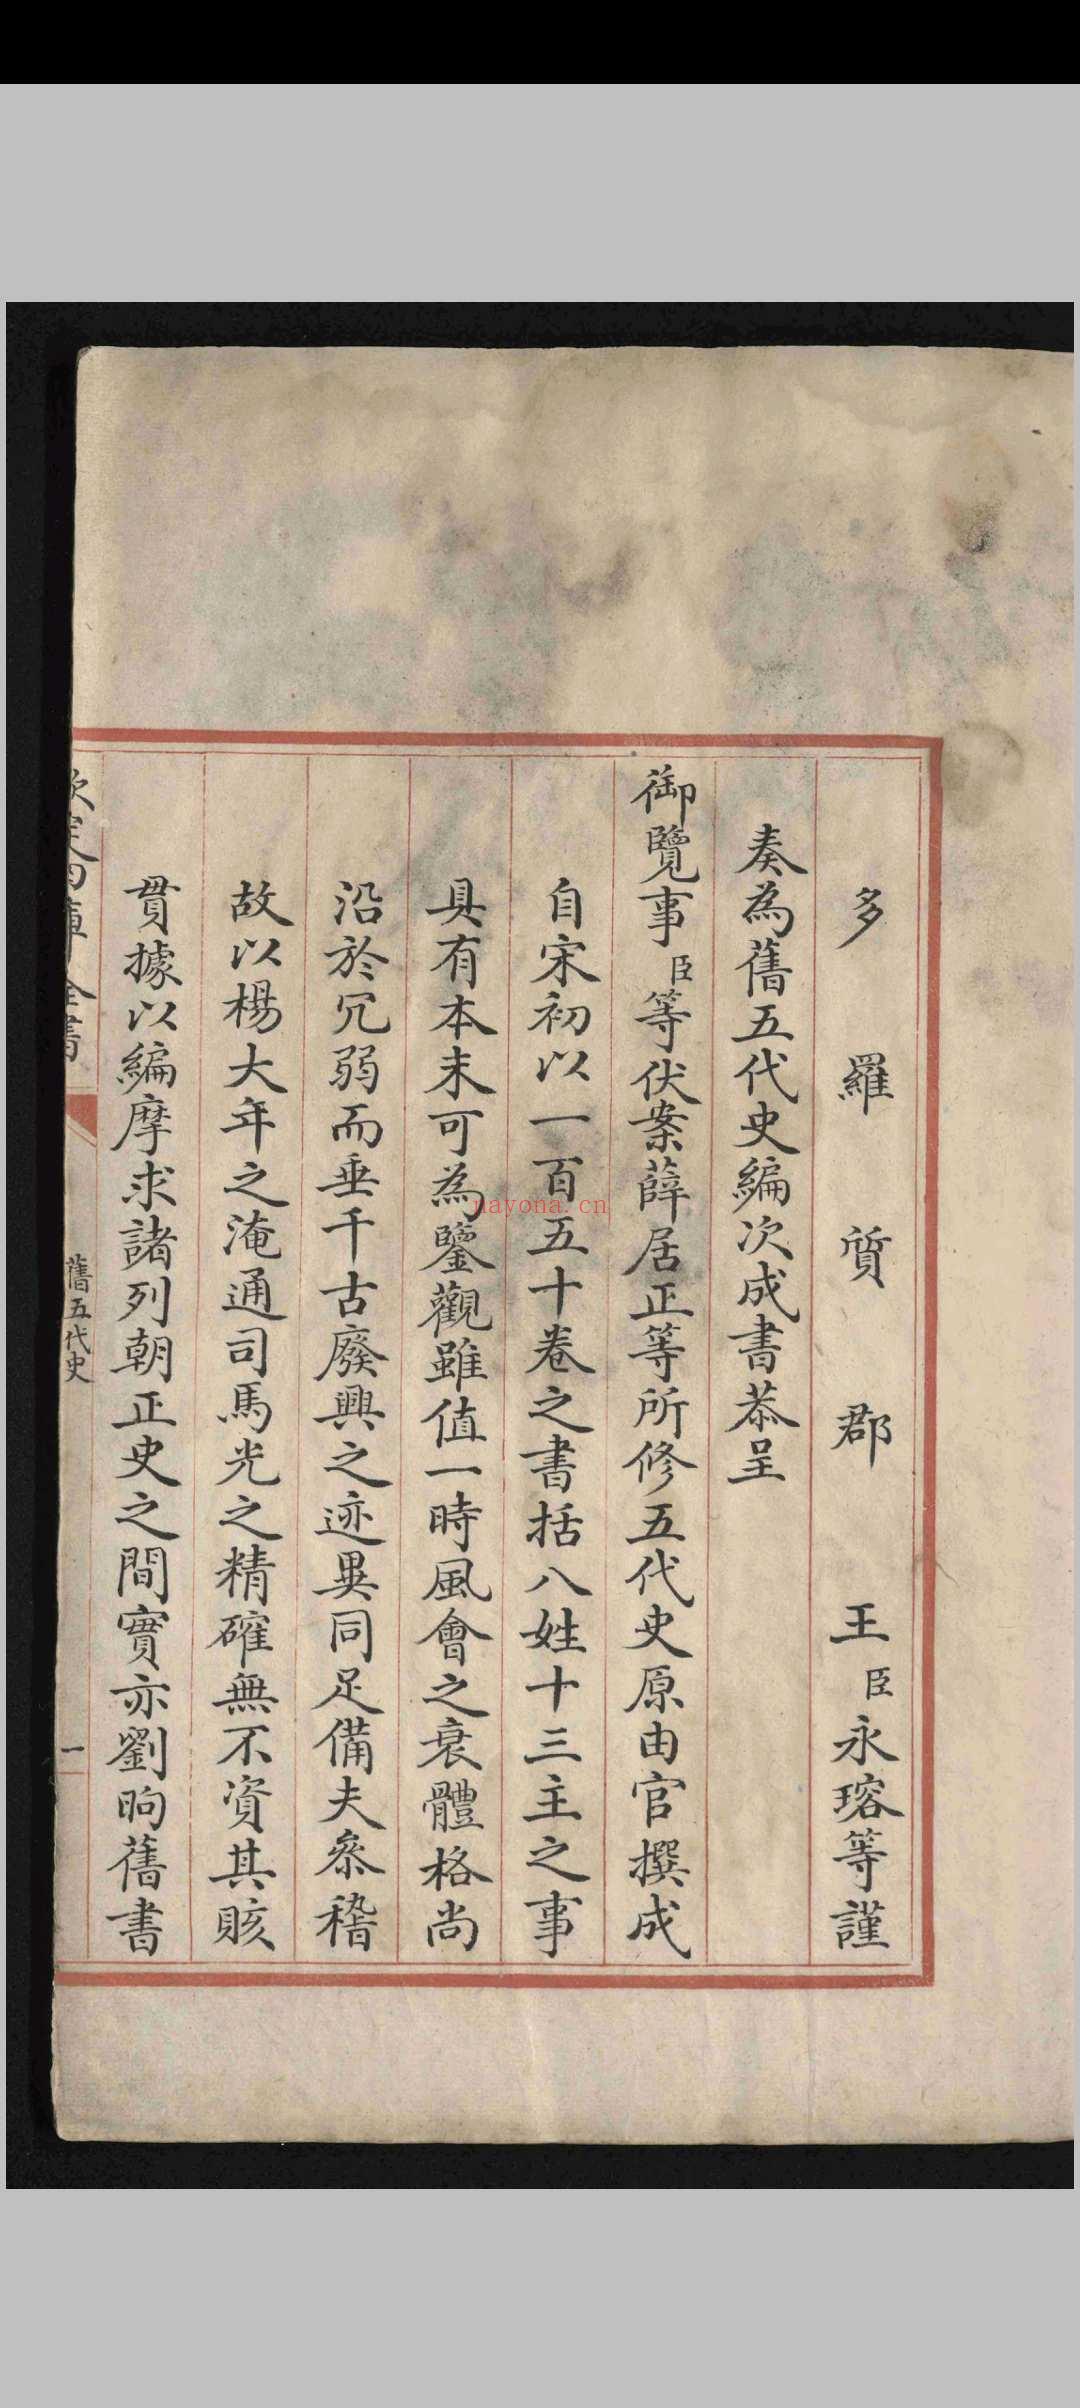 多羅質郡王臣永瑢等謹
奏為舊五代史編次成書恭呈
御覽事臣等伏案薛居正等所修五代史原由官撰成
自宋初以一百五十卷之書括八姓十三主之事
具有本末可為鑒觀雖值一時風會之衰體格尚
沿於冗弱而垂千古廢興之迹異同足備夫叅稽
故以楊大年之淹通司馬光之精確無不資其賅
貫據以編摩求諸列朝正史之間實亦劉昫舊書
欽定四庫全書
舊五代史
一
nayona.cn